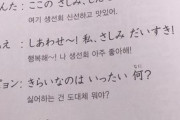 んた: ここの さしみ、しんせ
여기 생선회 신선하고 맛있어.
え: しあわせ〜! 私、さしみ だいすき!
행복해~! 나 생선회 아주 좋아해!
ョン: きらいなのは いったい 何なに?
싫어하는 건 도대체 뭐야?